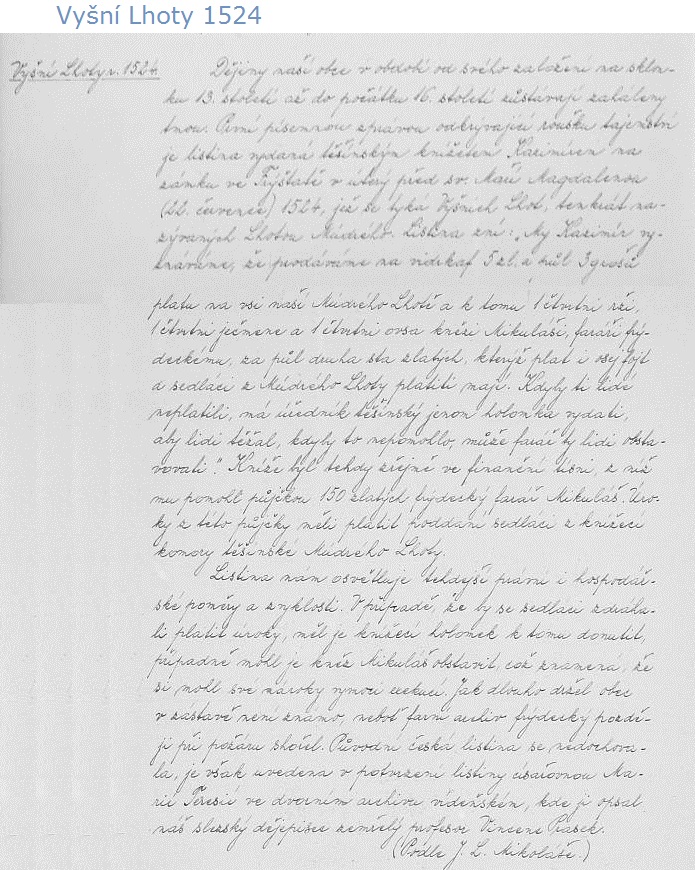 Vyšní Lhoty 1524
Vyšní Lhoty r. 1524.
Dějiny naší obce v období od svého založení na sklon-
ku 13. století až do počátku 16. století zůstávají zahaleny
tmou. První písemnou zprávou odkrývající roušku tajemství
je listina vydaná těšínským knížetem Kazimírem na
zámku ve Fryštatě v úterý před sv. Maří Magdalenou
(22. července) 1524, jež se týká Vyšních Lhot, tenkrát na-
zývaných Lhotou Múdrého. Listina zní: „My Kazimír vy-
znáváme, že prodáváme na vidrkaf 5 zl. a půl 3 groše
platu na vsi naší Múdrého Lhotě a k tomu 1 čtvrtni rži,
1 čtvrtni ječmene a 1 čtvrtni ovsa knězi Mikuláši, faráři frý-
deckému, za půl druha sta zlatých, kterýž plat i osep fojt
a sedláci z Múdrého Lhoty platiti mají. Kdyby ti lidé
neplatili, má úředník těšínský jenom holomka vydati,
aby lidi těžal, kdyby to nepomohlo, může farář ty lidi obsta-
vovati". Kníže byl tehdy zřejmě ve finanční tísni, z níž
mu pomohl půjčkou 150 zlatých frýdecký farář Mikuláš. Úro-
ky z této půjčky měli platit poddaní sedláci z knížecí
komory těšínské Múdrého Lhoty.
Listina nám osvětluje tehdejší právní i hospodář-
ské poměry a zvyklosti. V případě, že by se sedláci zdráha-
li platit úroky, měl je knížecí holomek k tomu donutit,
případně mohl je kněz Mikuláš obstavit, což znamená, že
si mohl své nároky vymoci exekucí. Jak dlouho držel obec
v zástavě není známo, neboť farní archiv frýdecký pozdě-
ji při požáru shořel. Původní česká listina se nedochova-
la, je však uvedena v potvrzení listiny císařovnou Ma-
rií Terezií ve dvorním archivu vídeňském, kde ji opsal
náš slezský dějepisec zemřelý profesor Vincenc Prasek.
(Podle J. L. Mikoláše.)